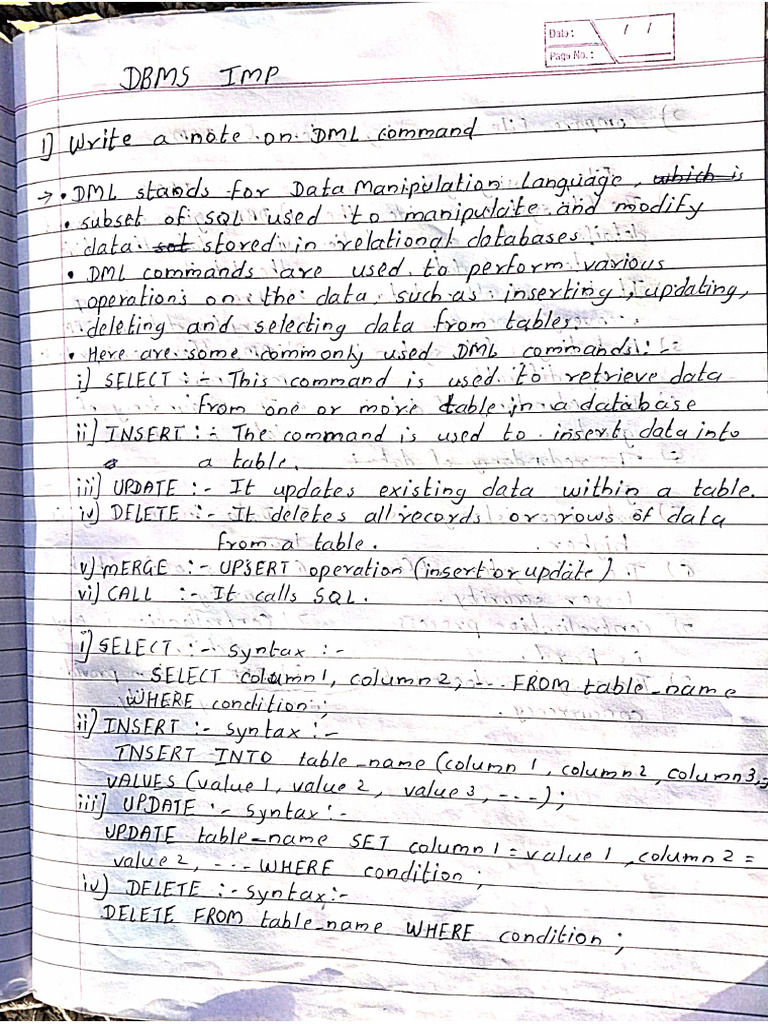 Date: / /
Page No.:
DBMS IMP
1) Write a note on DML command
→ • DML stands for Data Manipulation Language, which is
• subset of SQL used to manipulate and modify
data sot stored in relational databases.
• DML commands are used to perform various
operations on the data, such as inserting, updating,
deleting and selecting data from tables.
• Here are some commonly used DML commands :-
i) SELECT :- This command is used to retrieve data
from one or more table in a database
ii] INSERT :- The command is used to insert data into
a table.
iii] UPDATE :- It updates existing data within a table.
iv) DELETE :- It deletes all records or rows of data
from a table.
v) MERGE :- UPSERT operation (insert or update).
vi) CALL :- It calls SQL.
i] SELECT :- Syntax :-
SELECT column1, column2, --- FROM table_name
WHERE condition;
ii] INSERT :- syntax :-
INSERT INTO table_name (column 1, column2, column3,
VALUES (value 1, value 2, value 3, ---);
iii] UPDATE :- syntax :-
UPDATE table_name SET column1 = value 1, column 2 =
value 2, --- WHERE condition;
iv) DELETE :- syntax :-
DELETE FROM table_name WHERE condition;